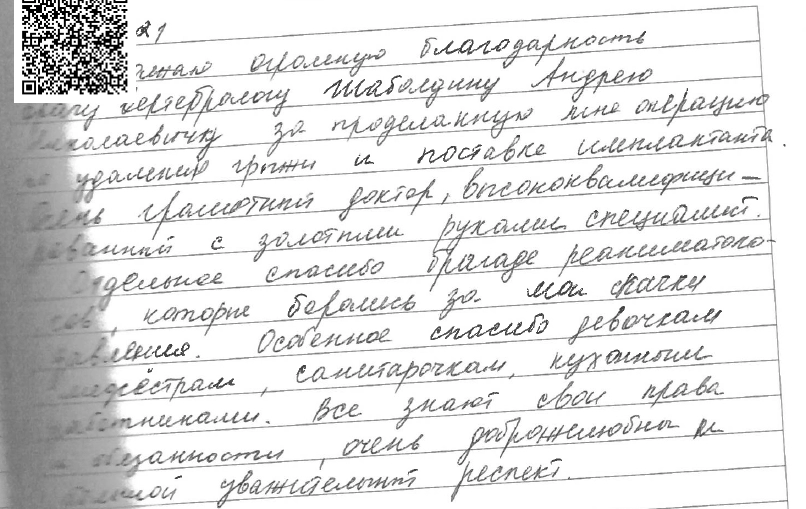 21
огромную благодарность
врачу вертебрологу Шаболдину Андрею
Николаевичу за проделанную мне операцию
по удалению грыжи и поставке имплантанта.
Очень грамотный доктор, высококвалифици-
рованный с золотыми руками специалист.
Отдельное спасибо бригаде реаниматоло-
гов, которые боролись за мои скачки
давления. Особенное спасибо девочкам
медсёстрам, санитарочкам, кухонным
работниками. Все знают свои права
и обязанности, очень доброжелюбны и
большой уважительный респект.